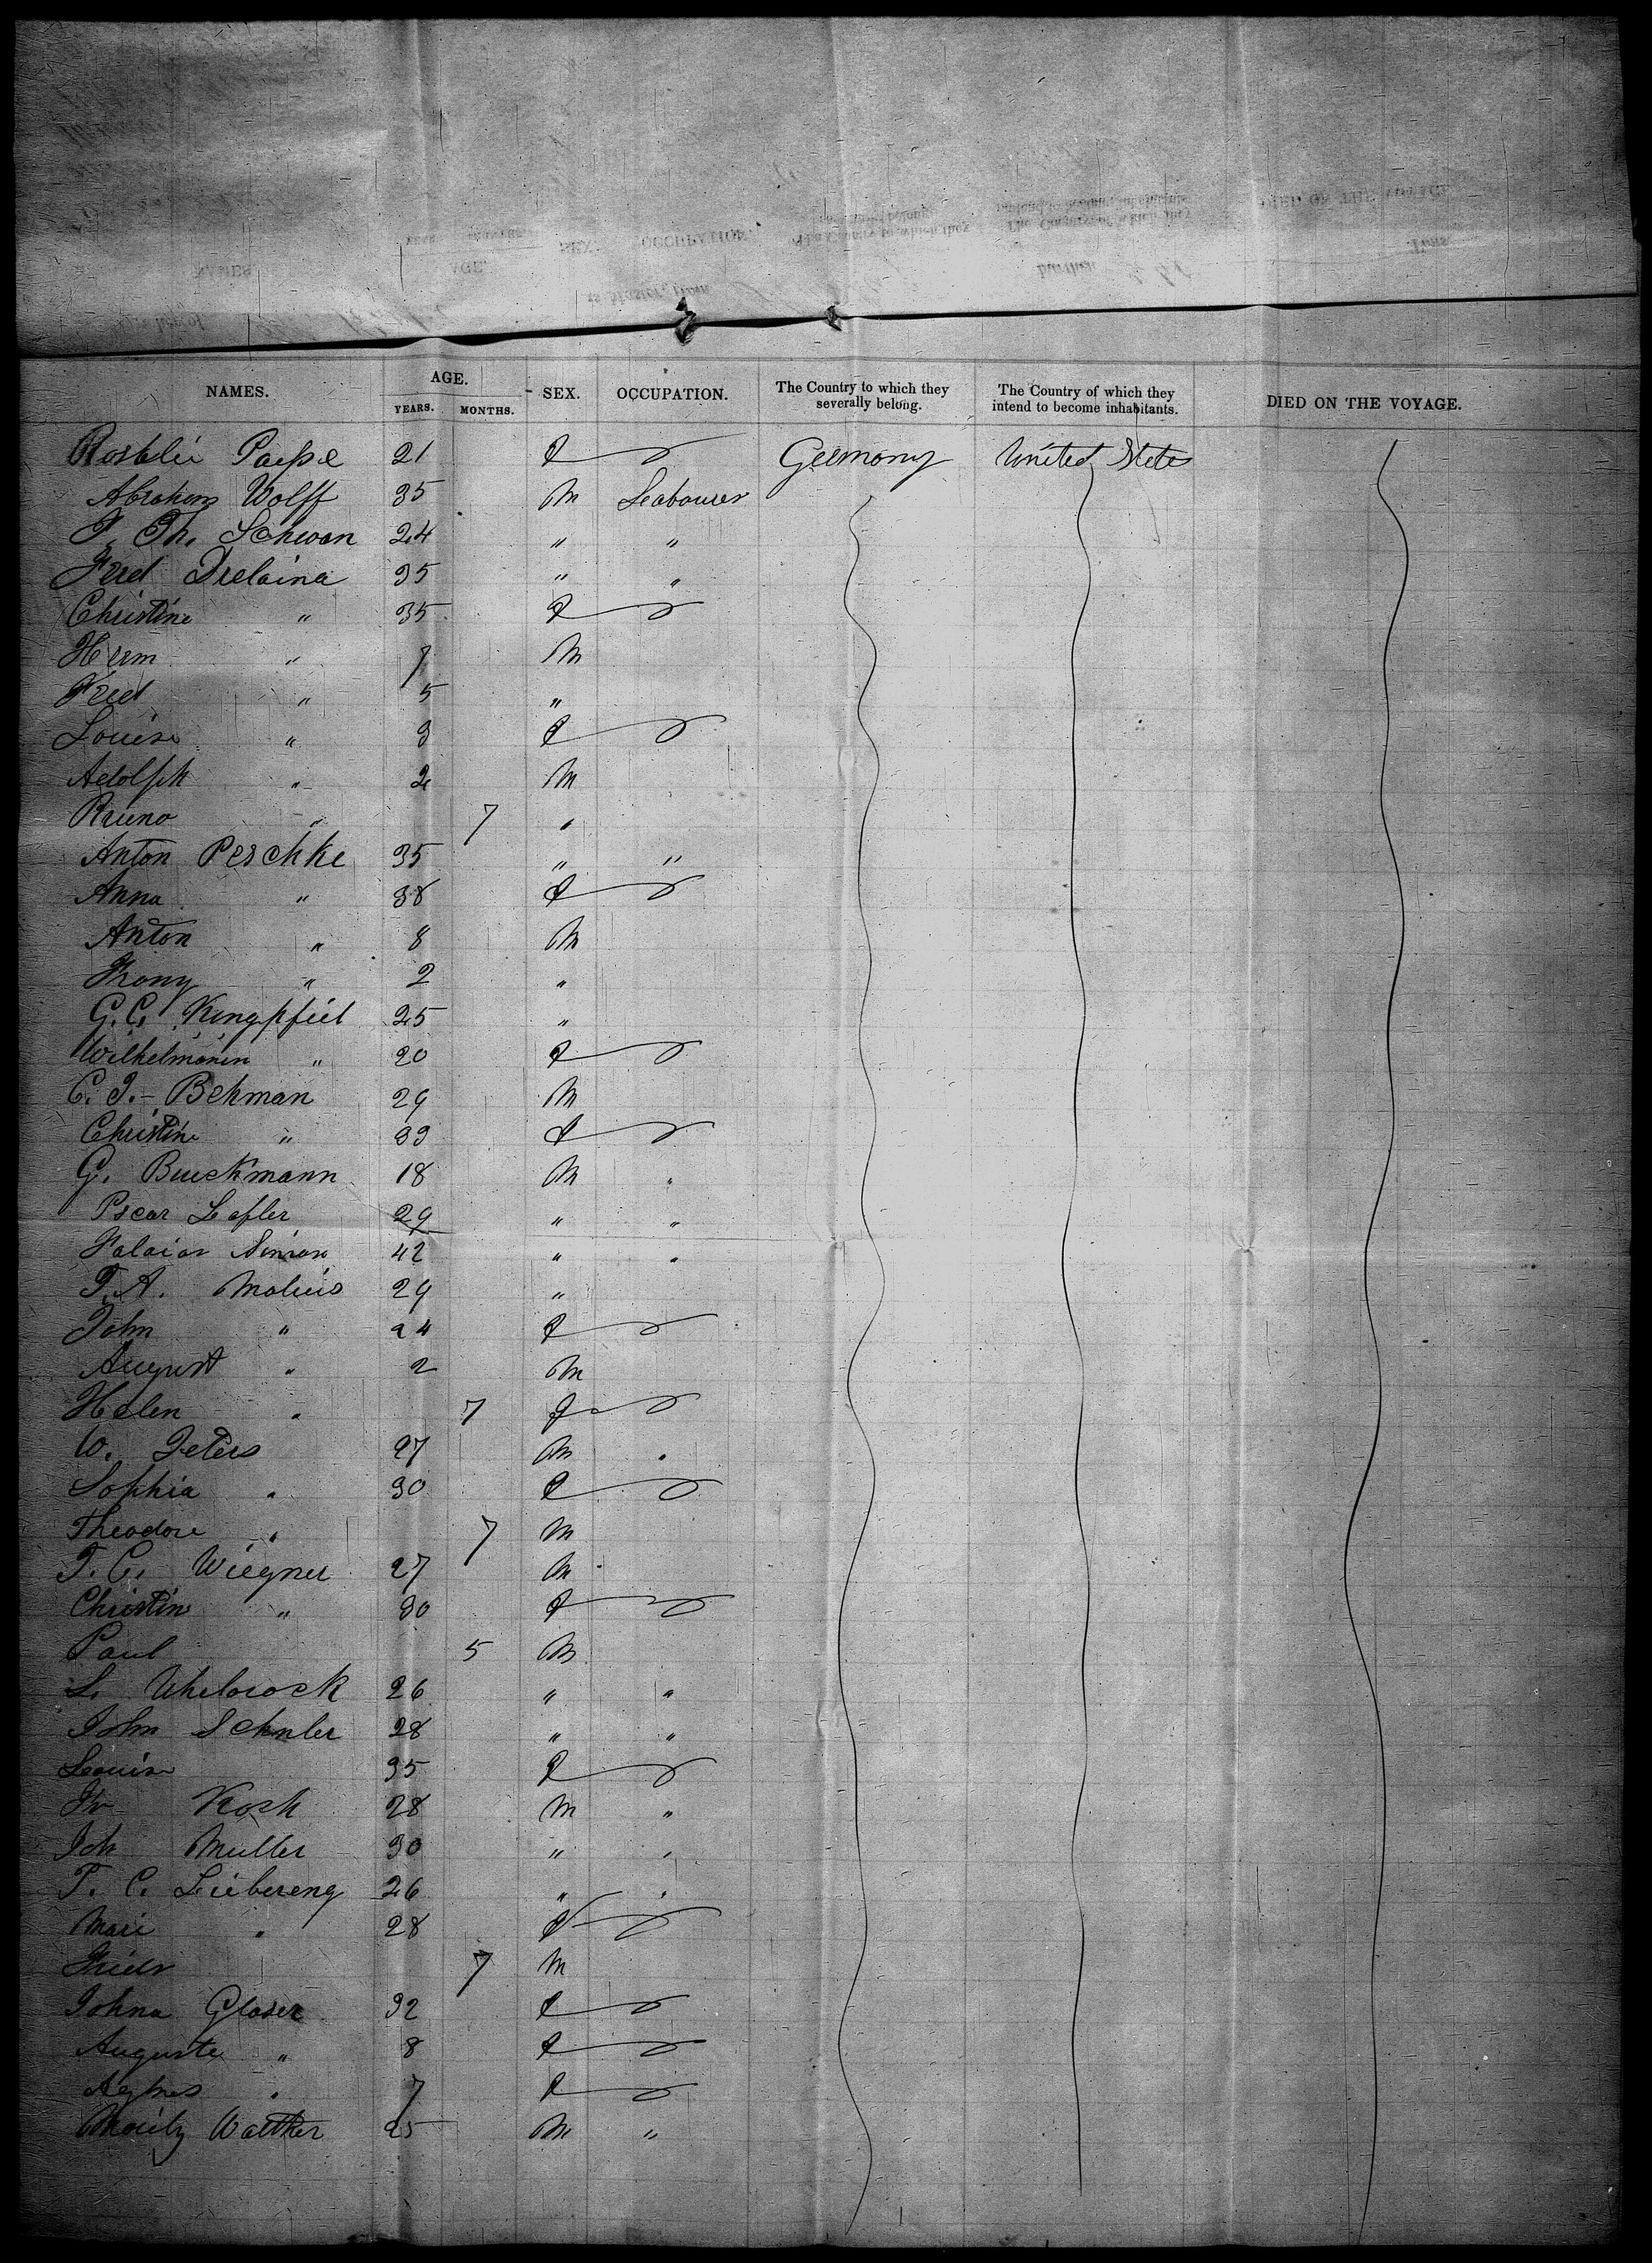 NAMES. AGE. SEX. OCCUPATION. The Country to which they severally belong. The Country of which they intend to become inhabitants. DIED ON THE VOYAGE.
YEARS. MONTHS.
21 f Germany United States
Abraham Wolff 35 M Leabourer
T. Th. Schwan 24 " "
Fred Drelaina 35 " "
Christine " 35 f
Herm " 7 M
Fred " 5 "
Louise " 3 f
Adolph " 2 M
Bruno " 7 "
Anton Peschke 35 " "
Anna " 38 f
Anton " 8 M
Frany " 2 "
G. C. Kingpfeil 25 "
" 20 f
C. J. Behman 29 M
Christine " 33 f
G. Bruckmann 18 M "
Oscar Lafler 29 " "
42 " "
T. A. Molius 29 "
John " 24 f
August " 2 M
Helen " 7 f
W. Peters 27 M "
Sophia " 30 f
Theodore " 7 M
T. C. Wiegner 27 M
Christin " 30 f
Paul 5 M
L. 26 " "
John Schuler 28 " "
Louise 35 f
Fr Koch 28 M "
Joh Muller 30 " "
T. C. Liebereng 26 " "
Marie " 28 f
Friedr 7 M
Johna Glaser 32 f
Auguste " 8 f
Agnes " 7 f
Moritz Walther 25 M "